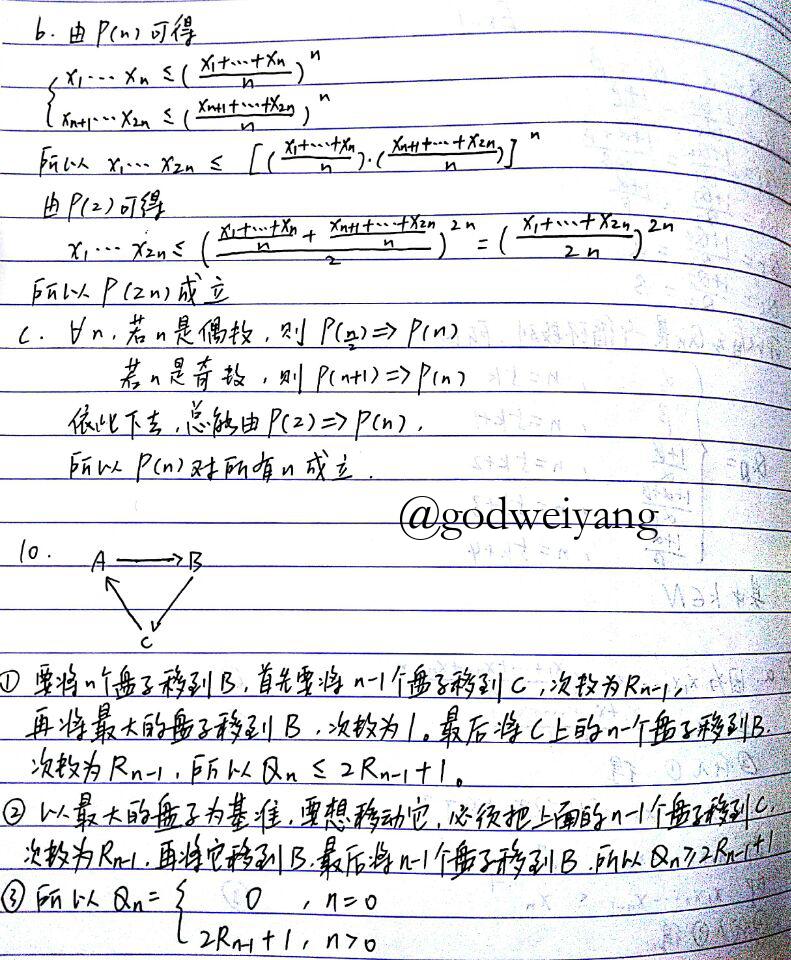 b. 由 P(n) 可得
{ x₁⋯xₙ ≤ ((x₁+⋯+xₙ)/n)ⁿ
xₙ₊₁⋯x₂ₙ ≤ ((xₙ₊₁+⋯+x₂ₙ)/n)ⁿ
所以 x₁⋯x₂ₙ ≤ [((x₁+⋯+xₙ)/n)·((xₙ₊₁+⋯+x₂ₙ)/n)]ⁿ
由 P(2) 可得
x₁⋯x₂ₙ ≤ (((x₁+⋯+xₙ)/n + (xₙ₊₁+⋯+x₂ₙ)/n)/2)²ⁿ = ((x₁+⋯+x₂ₙ)/2n)²ⁿ
所以 P(2n) 成立
c. ∀n, 若n是偶数, 则 P(n/2) => P(n)
若n是奇数, 则 P(n+1) => P(n)
依此下去, 总能由 P(2) => P(n).
所以 P(n) 对所有n成立.
@godweiyang
10. A → B
C
① 要将n个盘子移到B, 首先要将n-1个盘子移到C, 次数为Rₙ₋₁,
再将最大的盘子移到B, 次数为1。最后将C上的n-1个盘子移到B.
次数为Rₙ₋₁, 所以 Qₙ ≤ 2Rₙ₋₁+1。
② 以最大的盘子为基准, 要想移动它, 必须把上面的n-1个盘子移到C,
次数为Rₙ₋₁, 再将它移到B. 最后将n-1个盘子移到B. 所以 Qₙ ≥ 2Rₙ₋₁+1
③ 所以 Qₙ = { 0 , n=0
2Rₙ₋₁+1, n>0